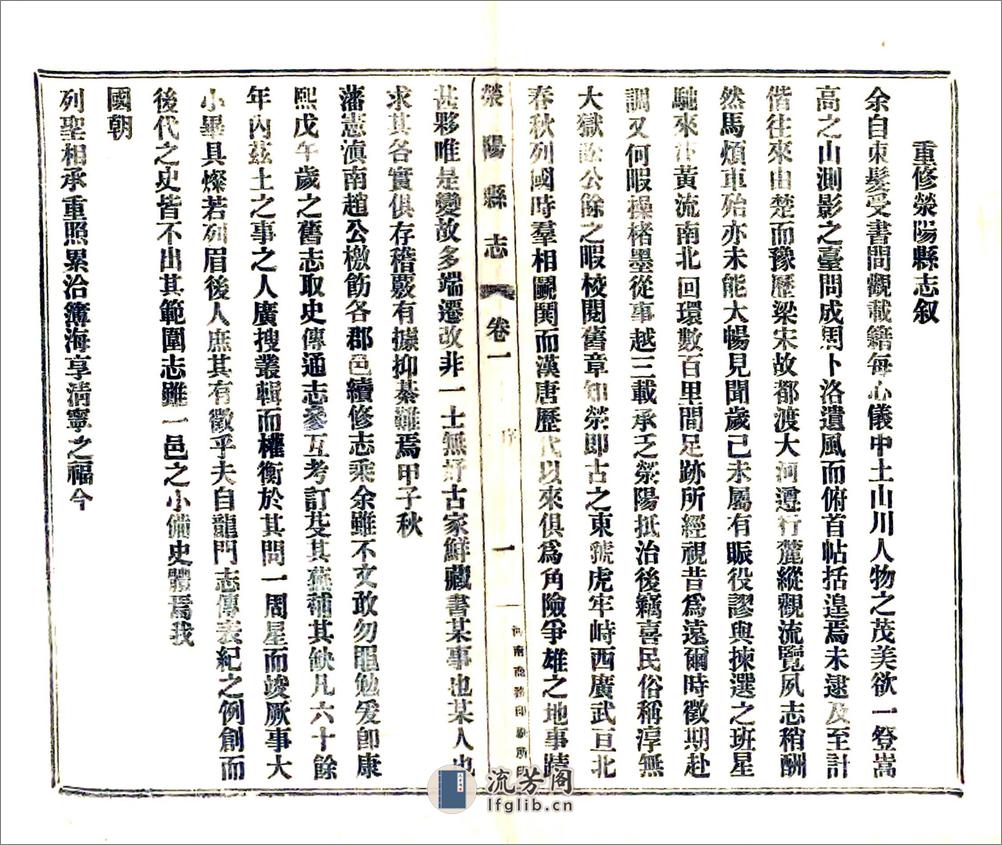 重修滎陽縣志叙
余自束髮受書間觀載籍每心儀中土山川人物之茂美欲一登嵩
高之山測影之臺問成周卜洛遺風而俯首帖括遑焉未逮及至計
偕往來由楚而豫歷梁宋故都渡大河遵行麓縱觀流覽夙志稍酬
然馬煩車殆亦未能大暢見聞歲己未屬有賑役謬與揀選之班星
馳來 黃流南北回環數百里間足跡所經視昔爲遠爾時徵期赴
調又何暇操楮墨從事越三載承乏滎陽抵治後竊喜民俗稱淳無
大獄訟公餘之暇校閱舊章知滎即古之東虢虎牢峙西廣武亘北
春秋列國時羣相鬭鬩而漢唐歷代以來俱爲角險爭雄之地事蹟
滎陽縣志 卷一 序 一 河南商務印刷所印
甚夥唯是變故多端遷改非一士無 古家鮮藏書某事也某人也
求其各實俱存稽覈有據抑綦難焉甲子秋
藩憲滇南趙公檄飭各郡邑續修志乘余雖不文敢勿黽勉爰卽康
熙戊午歲之舊志取史傳通志參互考訂芟其蕪補其缺凡六十餘
年內茲土之事之人廣搜叢輯而權衡於其間一周星而竣厥事大
小畢具燦若列眉後人庶其有徵乎夫自龍門志傳表紀之例創而
後代之史皆不出其範圍志雖一邑之小備史體焉我
國朝
列聖相承重照累洽薄海享清寧之福今
流芳阁
lfglib.cn